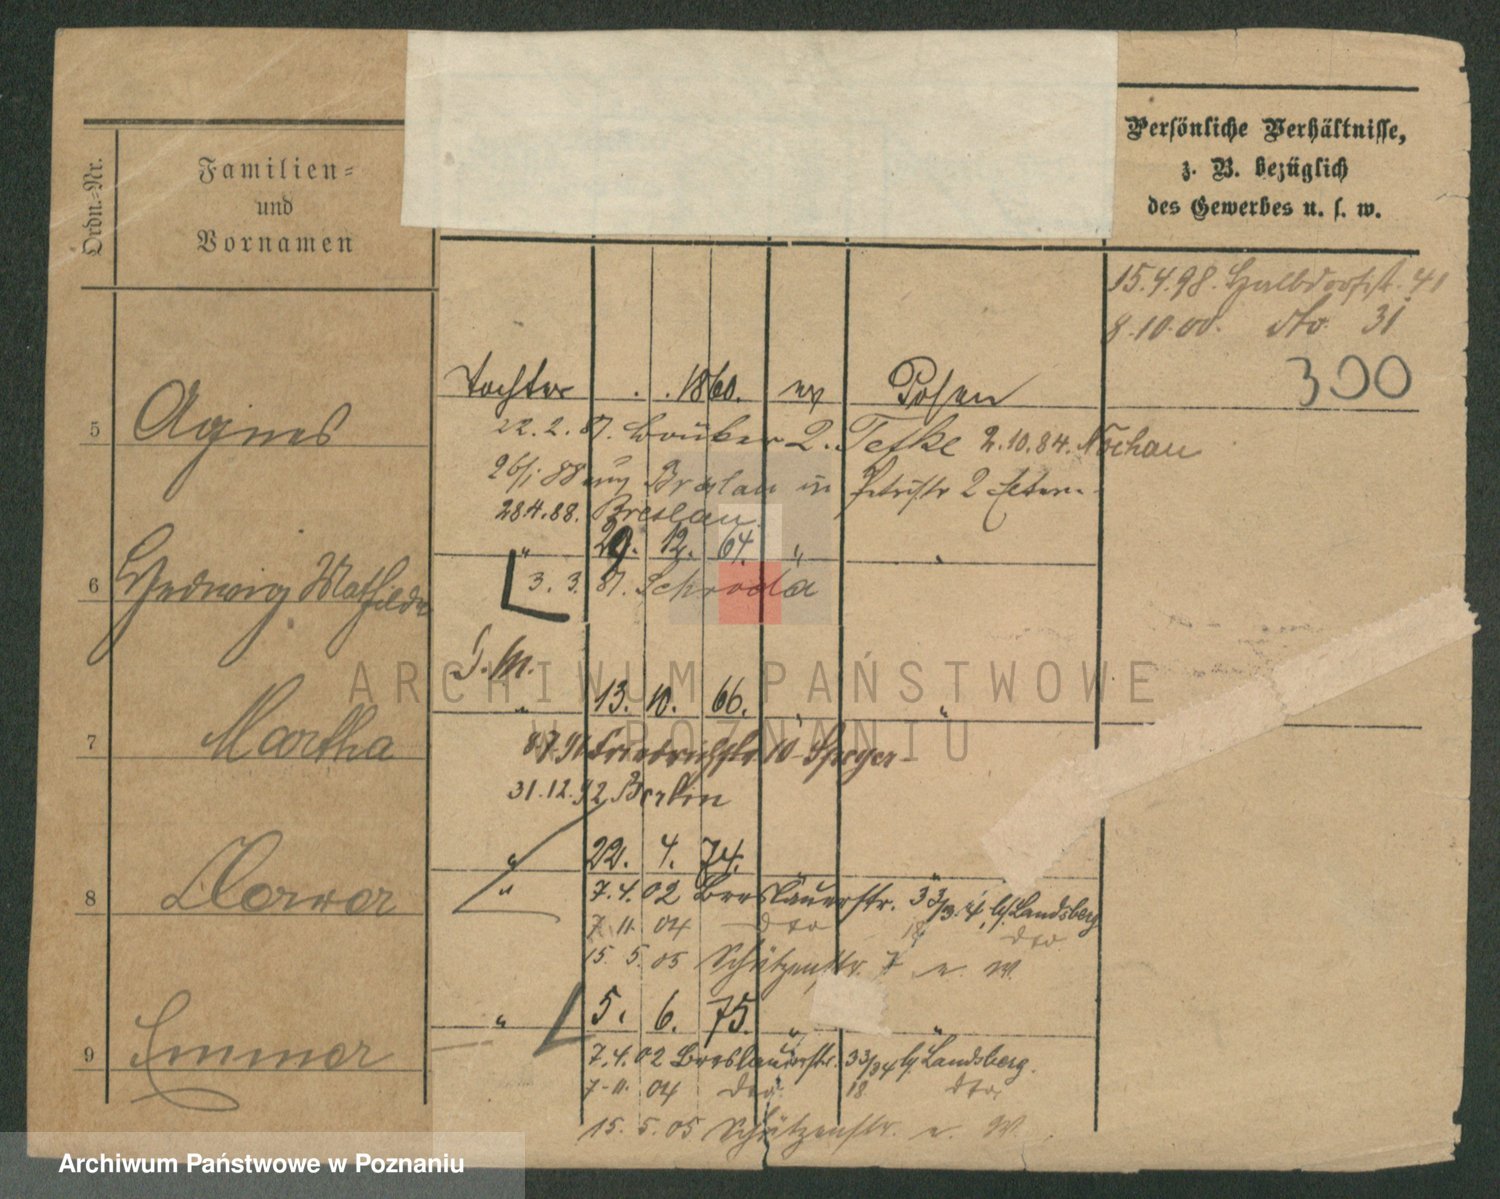 Ordn.-Nr.
Familien-
und
Vornamen
Persönliche Verhältnisse,
z. B. bezüglich
des Gewerbes u. s. w.
15.4.98. Halbdorfstr. 41
8.10.00. dto. 31
300
5 Agnes Tochter . . 1860. ev Posen
22. 2. 87. 2. Tefke 2.10.84. Nochau
26/1 88 Breslau in Petristr 2
28.4.88. Breslau.
6 Hedwig Mathilde " 29. 12. 64. "
3. 3. 87. Schroda
7 Martha " 13. 10. 66. "
8.7.91 Friedrichstr 10
31.12.92 Berlin
8 " 22. 4. 74. "
" 7.4.02 Breslauerstr. 33/34, b/ Landsberg
7. 11. 04 dto 18 dto
15. 5. 05 Schützenstr. 7 e. W.
9 Emma " 5. 6. 75. " "
7.4.02 Breslauerstr. 33/34 b/ Landsberg.
7. 11. 04 dto. 18 dto
15. 5. 05 Schützenstr. e. W.
ARCHIWUM PAŃSTWOWE
W POZNANIU
Archiwum Państwowe w Poznaniu